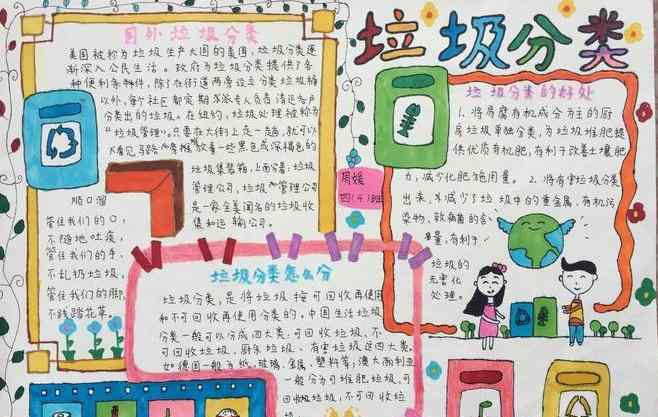 垃圾分类
国外垃圾分类
美国被称为垃圾生产大国的美国，垃圾分类逐
渐深入公民生活。政府为垃圾分类提供了各
种便利条件，除了在街道两旁设立分类垃圾桶
以外，每个社区都定期派专人负责清运各户
分类出的垃圾。在纽约，垃圾处理被称为
"垃圾管理"。只要在大街上走一走，就可以
看见马路放着一些黑色或深褐色的
垃圾集装箱，上面分着：垃圾
管理公司，垃圾管理公司
是一家全美闻名的垃圾收
集和运输公司。
顺口溜
管住我们的口，
不随地吐痰，
管住我们的手，
不乱扔垃圾，
管住我们的脚，
不践踏花草。
周媛
四(4)班
垃圾分类的好处
1、将易腐有机成分为主的厨
房垃圾单独分类，为垃圾堆肥提
供优质有机肥，有利于改善土壤肥
力，减少化肥施用量。2、将有害垃圾分类
出来，减少了垃圾中的重金属，有机污
染物，致病菌的含
量，有利于
垃圾的
无害化
处理。
垃圾分类怎么分
垃圾分类，是将垃圾按可回收再使用
和不可回收再使用分类的。中国生活垃圾
分类一般可以分成四大类：可回收垃圾、不
可回收垃圾、厨余垃圾、有害垃圾这四大类。
如德国一般为纸、玻璃、金属、塑料等；澳大利亚
一般分为可堆肥垃圾，可
回收垃圾，不可回收垃